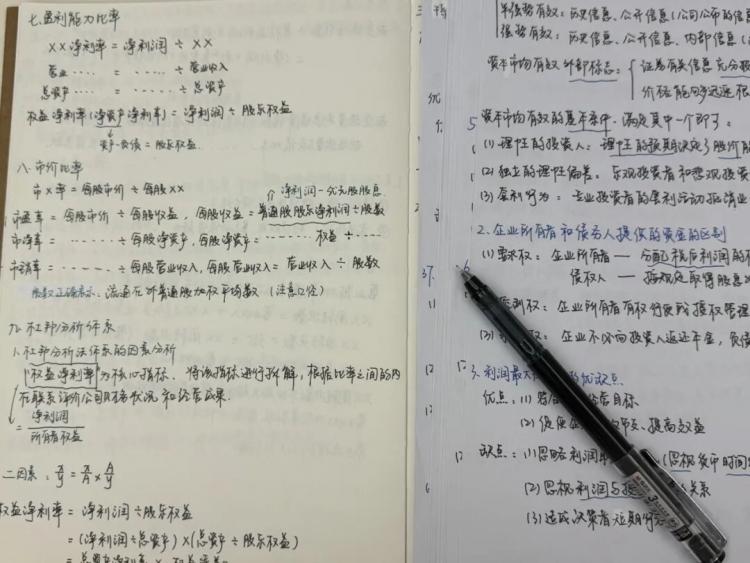 七、盈利能力比率
××净利率 = 净利润 ÷ ××
营业‥‥ = ‥‥‥ ÷ 营业收入
总资产‥‥ = ‥‥‥ ÷ 总资产
权益净利率(净资产净利率) = 净利润 ÷ 股东权益
资产-负债 = 股东权益
八、市价比率
市×率 = 每股市价 ÷ 每股××
净利润-优先股股息
市盈率 = 每股市价 ÷ 每股收益, 每股收益 = 普通股股东净利润 ÷ 股数
市净率 = ‥‥‥ ÷ 每股净资产, 每股净资产 = ‥‥‥ 权益 ÷ ‥‥
市销率 = ‥‥‥ ÷ 每股营业收入, 每股营业收入 = 营业收入 ÷ 股数
流通在外普通股加权平均数 (注意口径)
九、杜邦分析体系
1.杜邦分析法体系的因素分析
"权益净利率"为核心指标, 将该指标进行拆解, 根据比率之间的内
在联系评价公司财务状况和经营成果.
= 净利润
所有者权益
二因素:
权益净利率 = 净利润 ÷ 股东权益
= (净利润÷总资产) × (总资产÷股东权益)
= 总资产净利率 ×
半强势有效: 历史信息、公开信息 (公司公布的信
强势有效: 历史信息、公开信息、内部信息
资本市场有效外部标志: { 证券有关信息充分披
价格能够迅速根
5
资本市场有效的基本条件, 满足其中一个即可:
(1) 理性的投资人: 理性的预期决定了股价
(2) 独立的理性偏差: 乐观投资者和悲观投资
(3) 套利行为: 专业投资者的套利活动
2.企业所有者和债务人提供的资金的区别
(1) 要求权: 企业所有者 — 分配税后利润的
债权人 — 按规定取得股息
企业所有者有权行使或授权管理
企业不必向投资人返还本金, 负债
3.利润最大
优点: (1)
经营目标
(2) 促使企
、提高效益
缺点: (1) 忽略利润
(忽视货币时间
(2) 忽视利润与
关系
(3) 造成决策者短期行